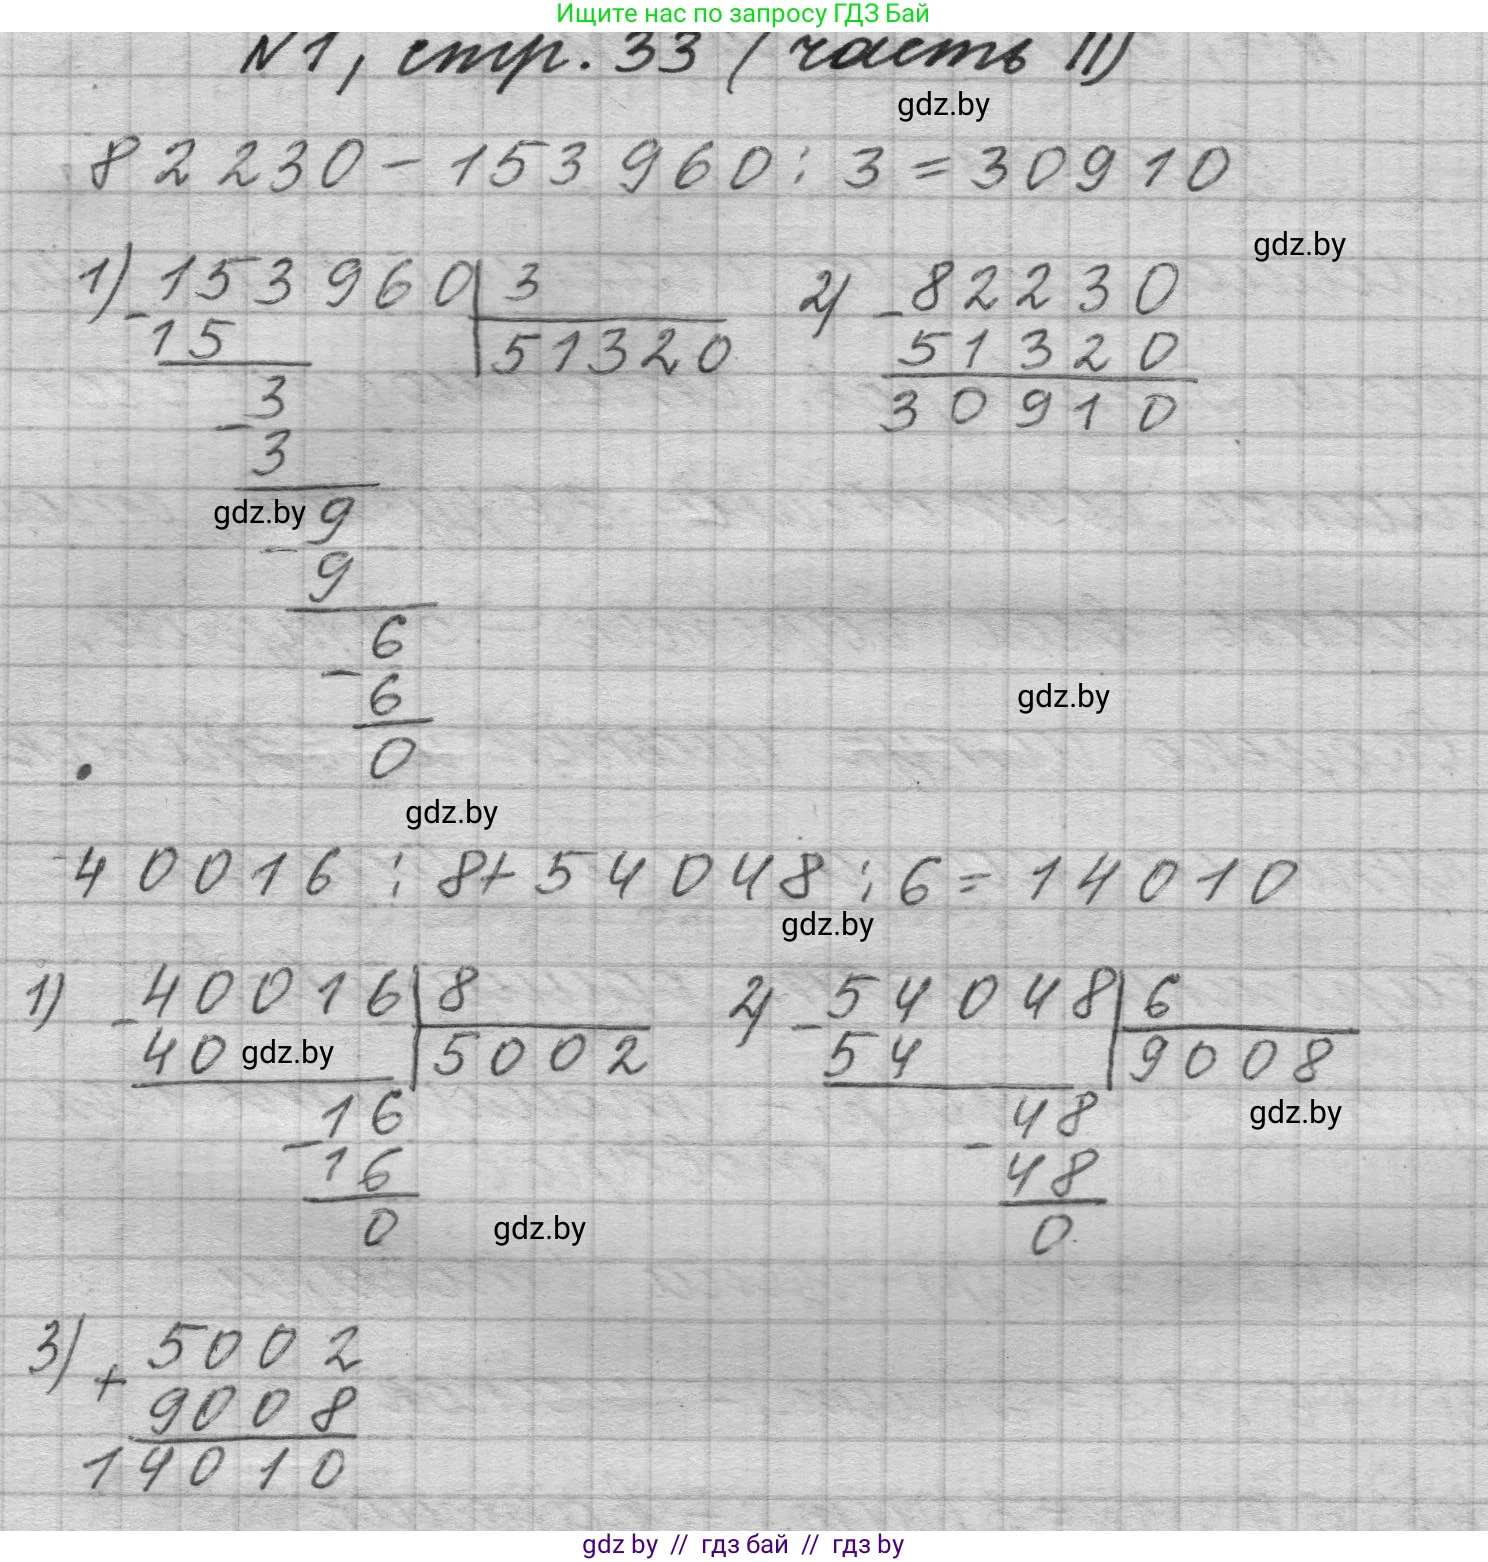 Ищите нас по запросу ГДЗ Бай
№1, стр. 33 (часть II)
gdz.by
82230 - 153960 : 3 = 30910
gdz.by
1) 153960 | 3
- 15
51320
- 3
3
gdz.by
9
- 9
6
- 6
0
2) - 82230
51320
30910
gdz.by
gdz.by
40016 : 8 + 54048 : 6 = 14010
gdz.by
1) - 40016 | 8
40
5002
gdz.by
- 16
16
0
2) - 54048 | 6
54
9008
gdz.by
- 48
48
0
gdz.by
3) + 5002
9008
14010
gdz by // гдз бай // гдз by